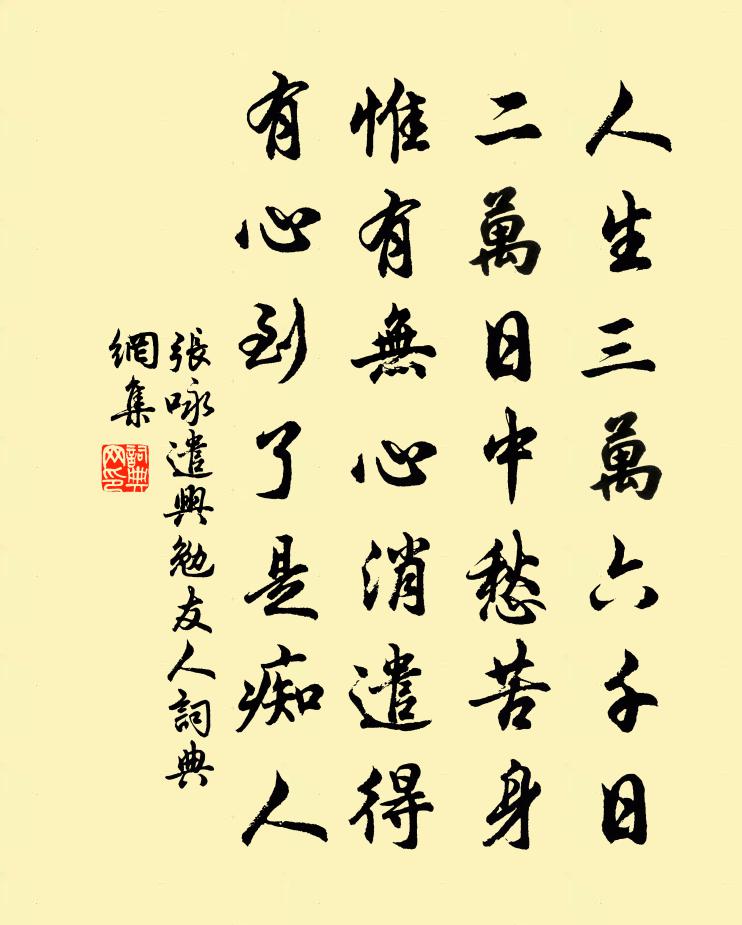 人生三萬六千日
二萬日中愁苦身
惟有無心消遣得
有心到了是痴人
張咏遣興勉友人詞典
網集
詞典
网印